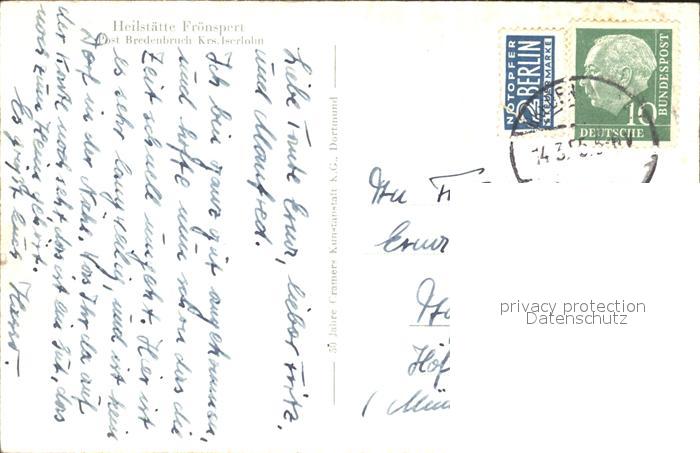 Heilstätte Frönspert
Post Bredenbruch Krs. Iserlohn
Liebe Tante Erna, lieber Fritz,
und Manfred.
Ich bin ganz gut angekommen,
und hoffe nun schon das die
Zeit schnell umgeht. Hier ist
es sehr langweilig, und ist kein
Dorf in der Nähe. Was Ihr da auf
der Karte noch seht, das ist ein Gut, das
noch zum Heim gehört.
Es grüßt Euch Horst.
50 Jahre Cramers Kunstanstalt K.G., Dortmund
NOTOPFER
2 BERLIN
STEUERMARKE
10
DEUTSCHE
BUNDESPOST
14.3.55
An
Erna
Höf
(Mün
privacy protection
Datenschutz